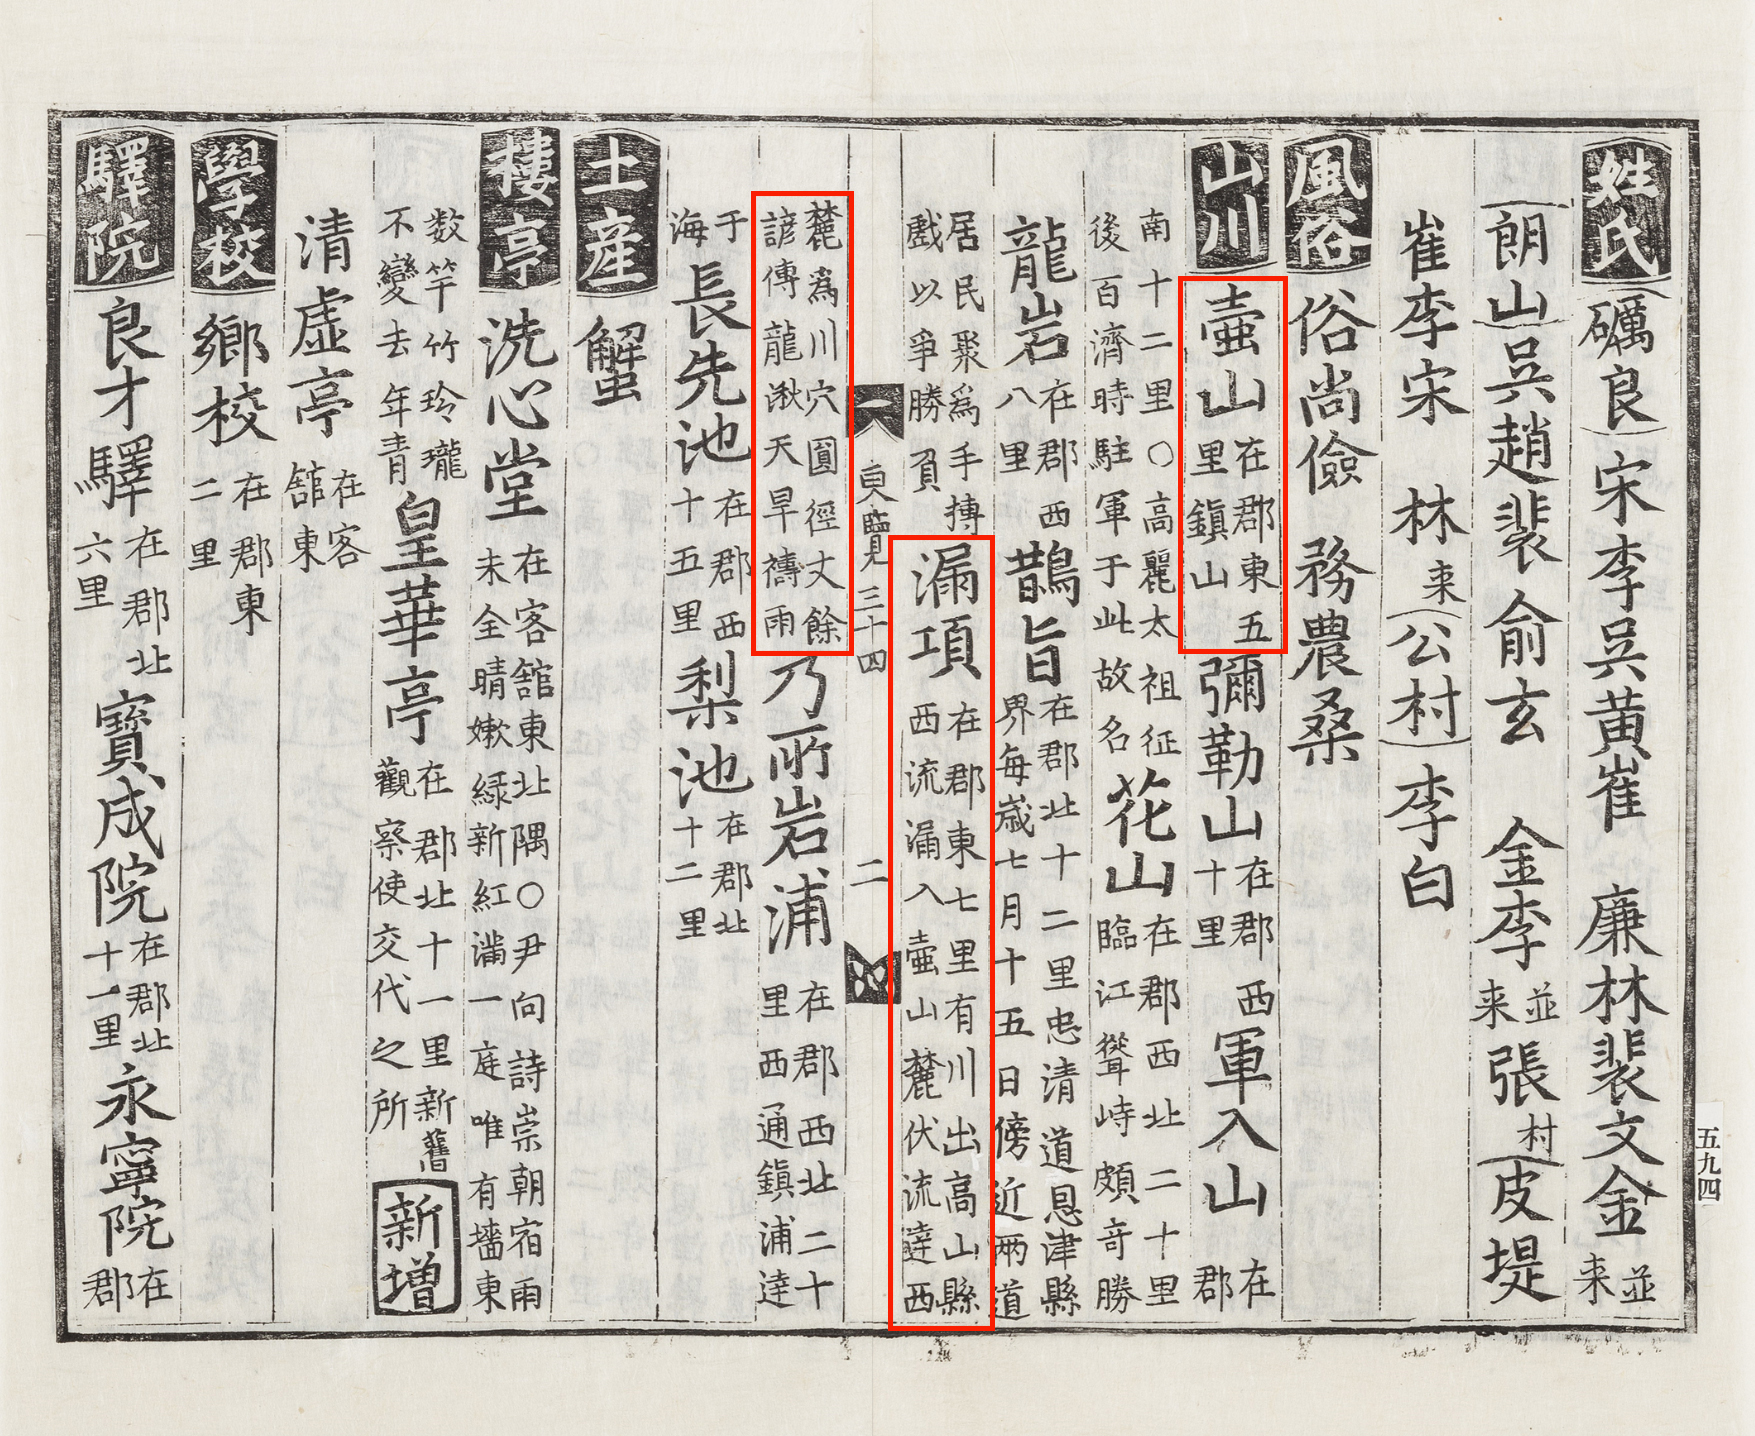 姓氏 礪良 宋李吳黃崔 廉林裴文金 並来
朗山 吳趙裴俞玄 金李 並来 張 村 皮堤
崔李宋 林 来 公村 李白
風俗 俗尚儉 務農桑
山川 壺山 在郡東五里鎭山 彌勒山 在郡西十里 軍入山 在郡
南十二里○高麗太祖征後百濟時駐軍于此故名 花山 在郡西北二十里臨江聳峙頗奇勝
龍岩 在郡西八里 鵲旨 在郡北十二里忠清道恩津縣界每歲七月十五日傍近兩道
居民聚爲手搏戲以爭勝負 漏項 在郡東七里有川出高山縣西流漏入壺山麓伏流達西
輿覽三十四 二
麓爲川穴圓徑丈餘諺傳龍湫天旱禱雨 乃所岩浦 在郡西北二十里西通鎭浦達
于海 長先池 在郡西十五里 梨池 在郡北十二里
土産 蟹
樓亭 洗心堂 在客舘東北隅○尹向詩崇朝宿雨未全晴嫰綠新紅滿一庭唯有墻東
数竿竹玲瓏不變去年青 皇華亭 在郡北十一里新舊觀察使交代之所 新增
清虛亭 在客舘東
學校 鄕校 在郡東二里
驛院 良才驛 在郡北六里 寶成院 在郡北十一里 永寧院 在郡
五九四